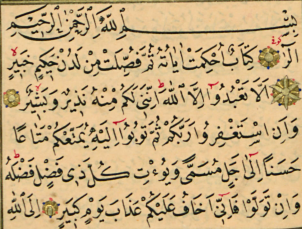 بِسْمِ اللهِ الرَّحْمٰنِ الرَّحِيمِ
الٓرٰ كِتَابٌ اُحْكِمَتْ اٰيَاتُهُ ثُمَّ فُصِّلَتْ مِنْ لَدُنْ حَكِيمٍ خَبِيرٍ
اَلَّا تَعْبُدُٓوا اِلَّا اللهَ اِنَّنِي لَكُمْ مِنْهُ نَذِيرٌ وَبَشِيرٌ
وَاَنِ اسْتَغْفِرُوا رَبَّكُمْ ثُمَّ تُوبُٓوا اِلَيْهِ يُمَتِّعْكُمْ مَتَاعًا
حَسَنًا اِلٰٓى اَجَلٍ مُسَمًّى وَيُؤْتِ كُلَّ ذِي فَضْلٍ فَضْلَهُ
وَاِنْ تَوَلَّوْا فَاِنِّٓي اَخَافُ عَلَيْكُمْ عَذَابَ يَوْمٍ كَبِيرٍ اِلَى اللهِ